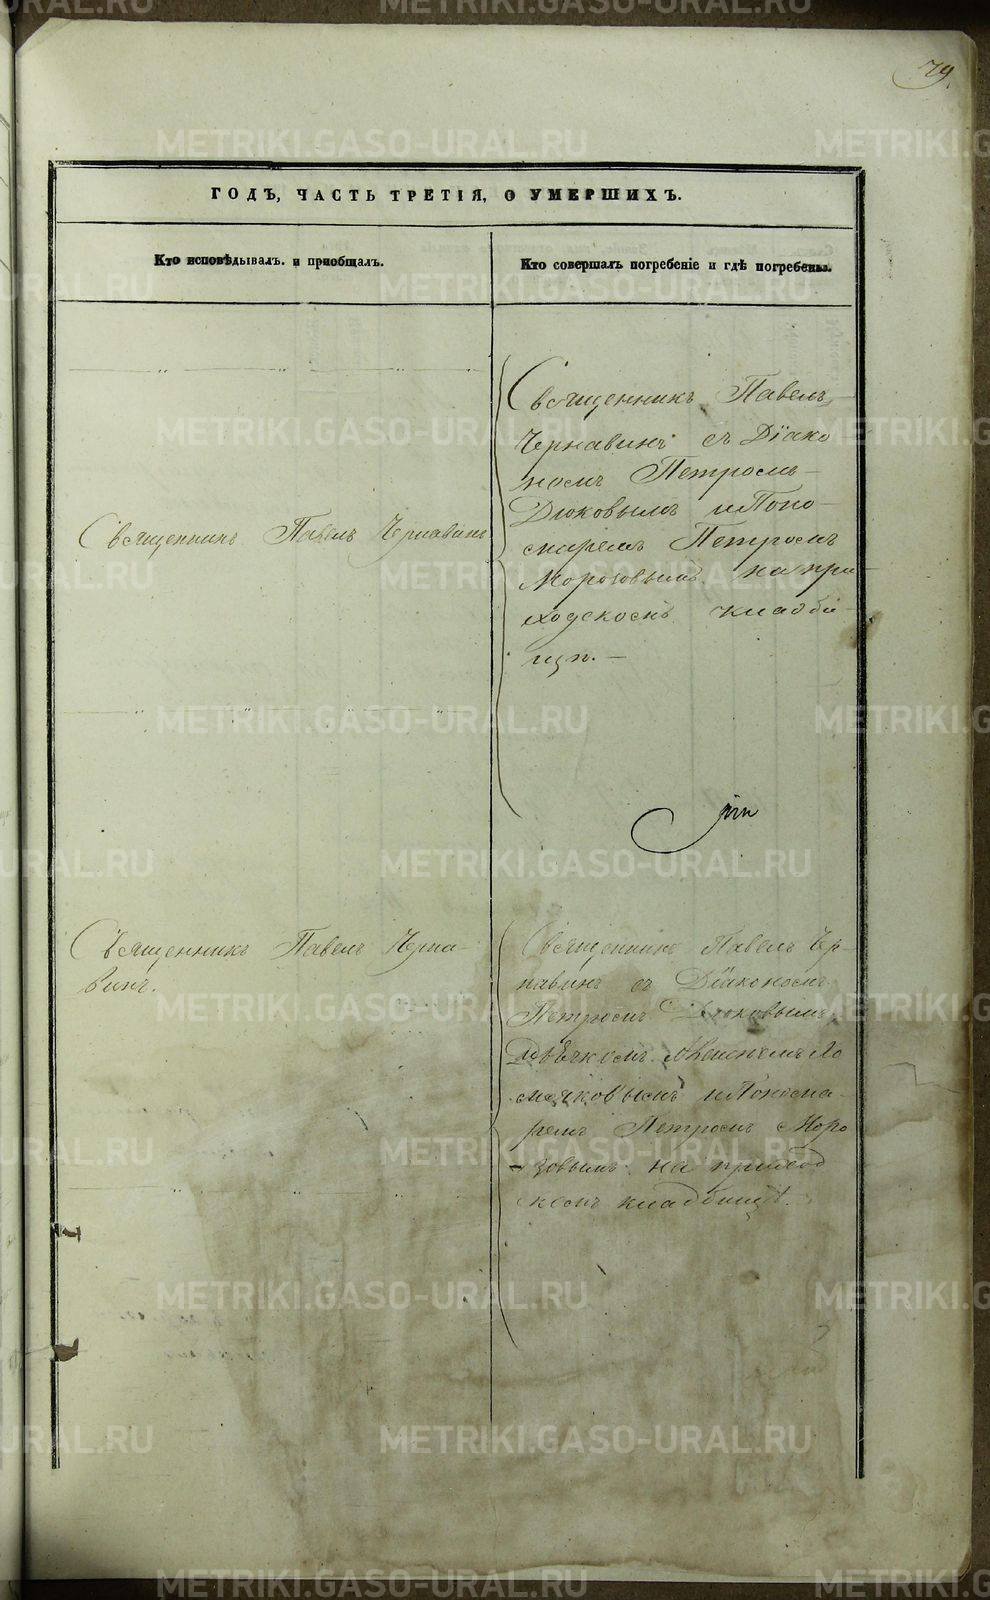 79.
ГОДЪ, ЧАСТЬ ТРЕТІЯ, О УМЕРШИХЪ.
Кто исповѣдывалъ и пріобщалъ.
Кто совершалъ погребеніе и гдѣ погребены.
Священникъ Павелъ
Чернавинъ съ Діако
номъ Петромъ
Дюковымъ и Поно
маремъ Петромъ
Морозовымъ на при
ходскомъ кладби
щѣ.
Священникъ Павелъ Чернавинъ
Священникъ Павелъ Черна-
винъ.
Священникъ Павелъ Чер-
навинъ съ Діакономъ
Петромъ Дюковымъ
Дьячкомъ
и Понома-
ремъ Петромъ Моро
зовымъ на приход
скомъ кладбищѣ.
METRIKI.GASO-URAL.RU